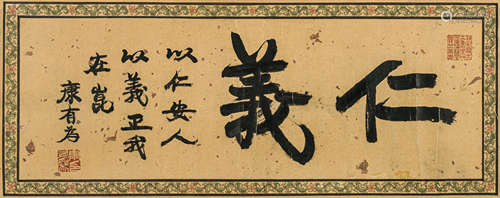 仁義
以仁安人
以義正我
在崑
康有為